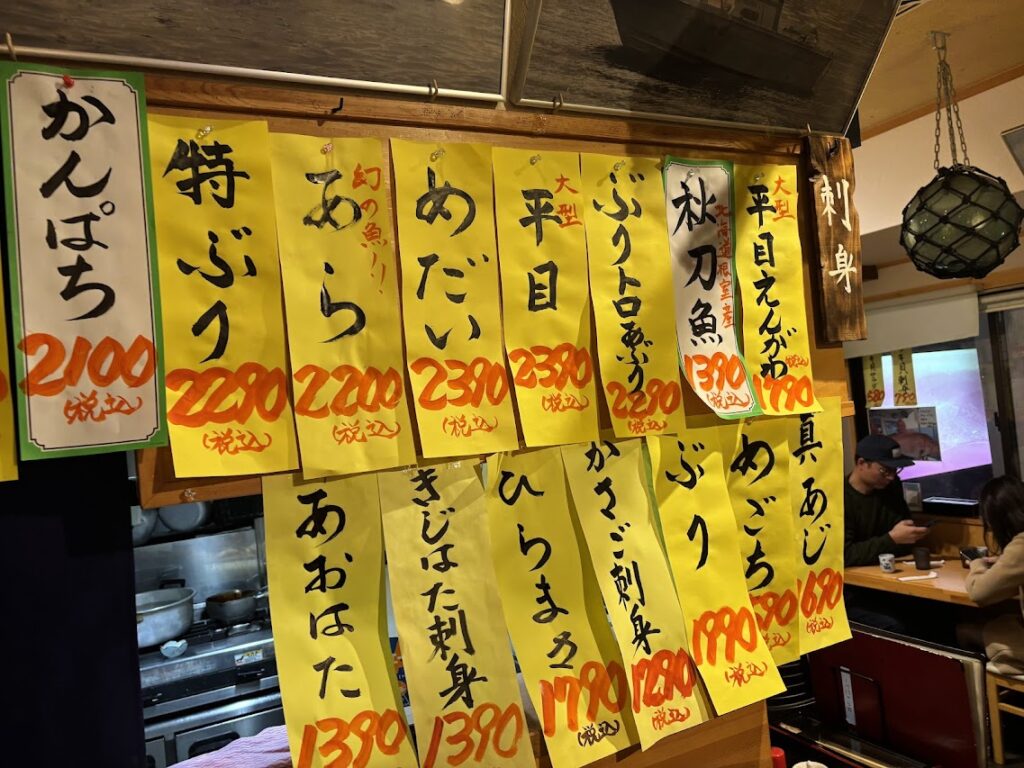 刺身
大型
平目えんがわ
1790
(税込)
秋刀魚
北海道根室産
1390
(税込)
ぶりトロあぶり
2290
(税込)
大型
平目
2390
(税込)
めだい
2390
(税込)
幻の魚!!
あら
2200
(税込)
特ぶり
2290
(税込)
かんぱち
2100
(税込)
真あじ
1690
(税込)
めごち
(税込)
ぶり
1990
(税込)
かさご刺身
1290
(税込)
ひらまさ
1790
(税込)
きじはた刺身
1390
あおはた
1390
580
刺身